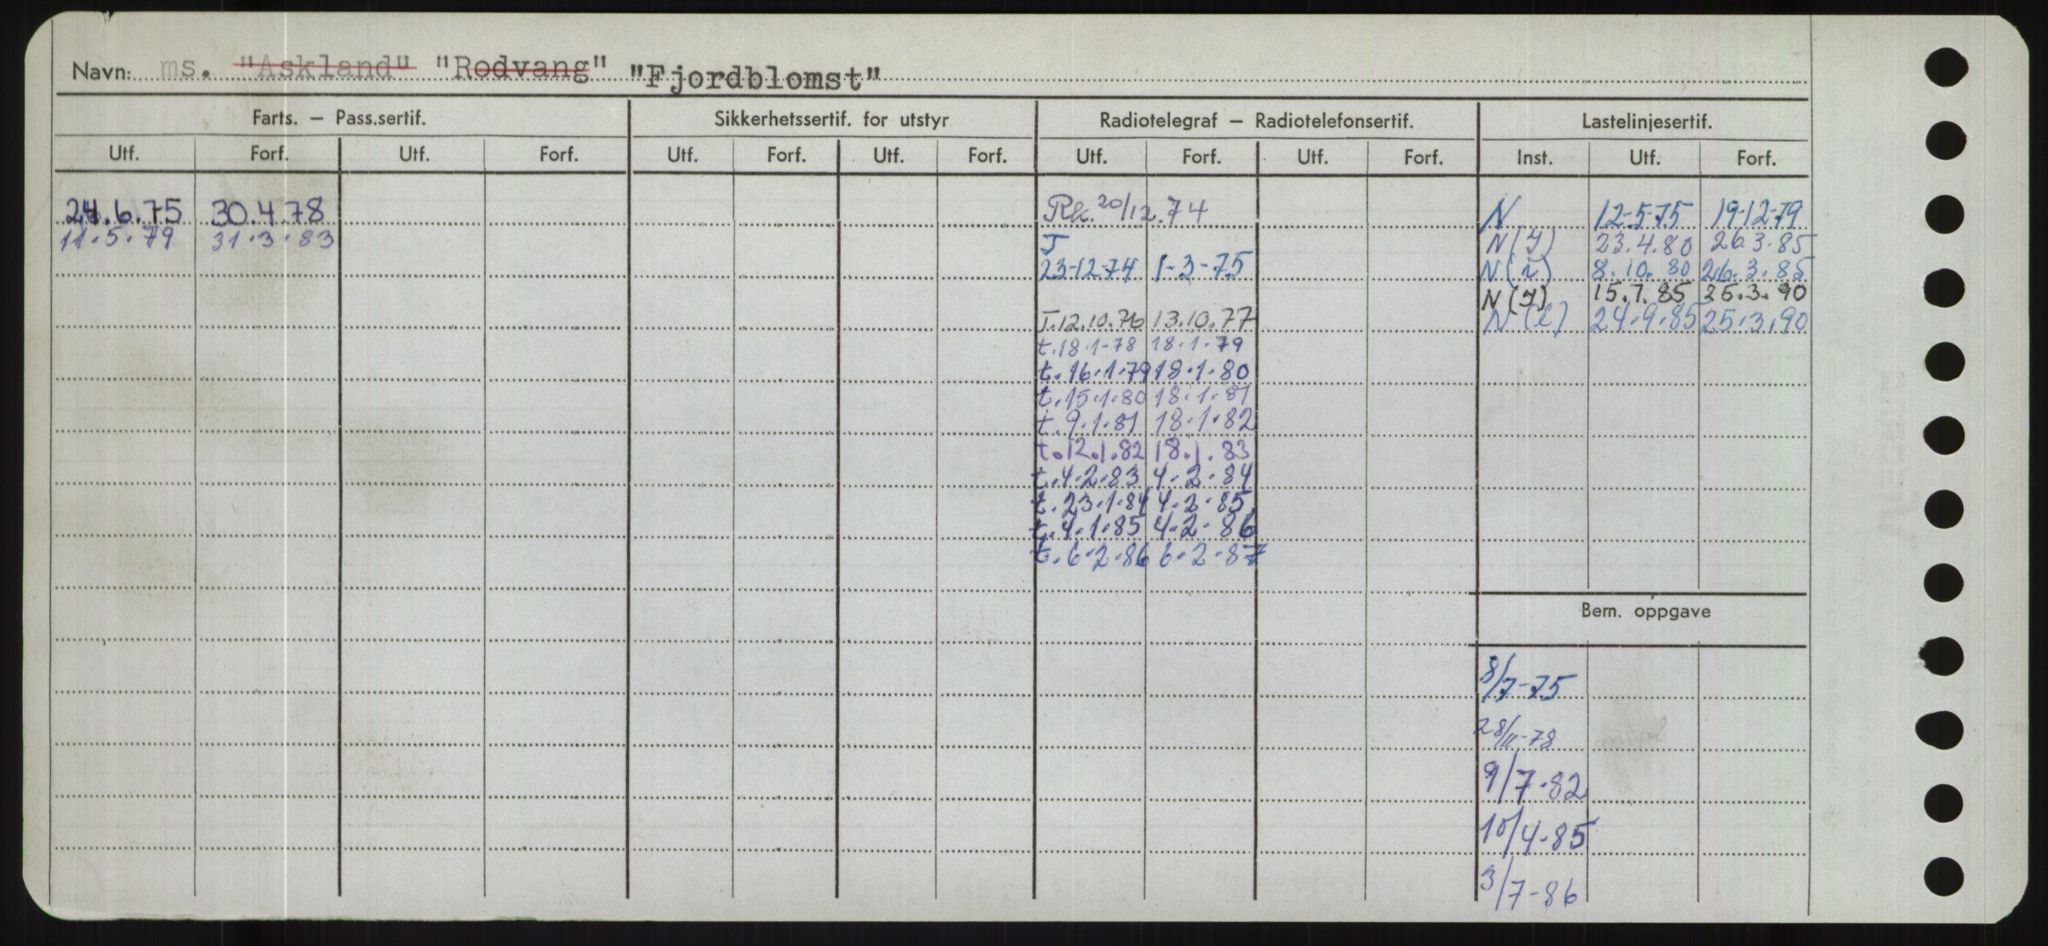 Navn: ms. "Askland" "Rodvang" "Fjordblomst"
Farts. — Pass.sertif. Sikkerhetssertif. for utstyr Radiotelegraf — Radiotelefonsertif. Lastelinjesertif.
Utf. Forf. Utf. Forf. Utf. Forf. Utf. Forf. Utf. Forf. Utf. Forf. Inst. Utf. Forf.
24.6.75 30.4.78 Rk. 20/12.74 N 12-5-75 19-12-79
11.5.79 31.3.83 J N(Y) 23.4.80 26.3.85
23-12-74 1-3-75 N(i) 8.10.80 26.3.85
N(Y) 15.7.85 25.3.90
J.12.10.76 13.10.77 N(i) 24.9.85 25.3.90
t.18.1-78 18.1.79
t.16.1.79 18.1.80
t.15.1.80 18.1.81
t.9.1.81 18.1.82
t.12.1.82 18.1.83
t.4.2.83 4.2.84
t.23.1.84 4.2.85
t.4.1.85 4.2.86
t.6.2.86 6.2.87
Bem. oppgave
8/7-75
28/11-78
9/7-82
10/4-85
3/7-86